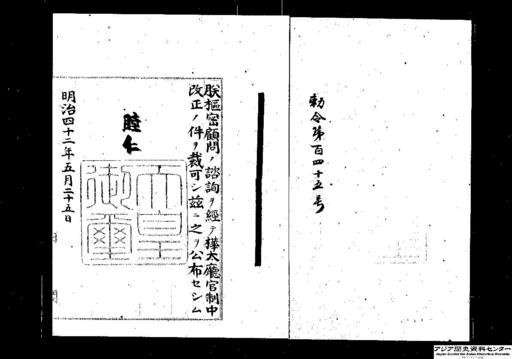 勅令第百四十五号
朕樞密顧問ノ諮詢ヲ經テ樺太廳官制中
改正ノ件ヲ裁可シ茲ニ之ヲ公布セシム
睦仁
天皇御璽
明治四十二年五月二十五日
アジア歴史資料センター
Japan Center for Asian Historical Records